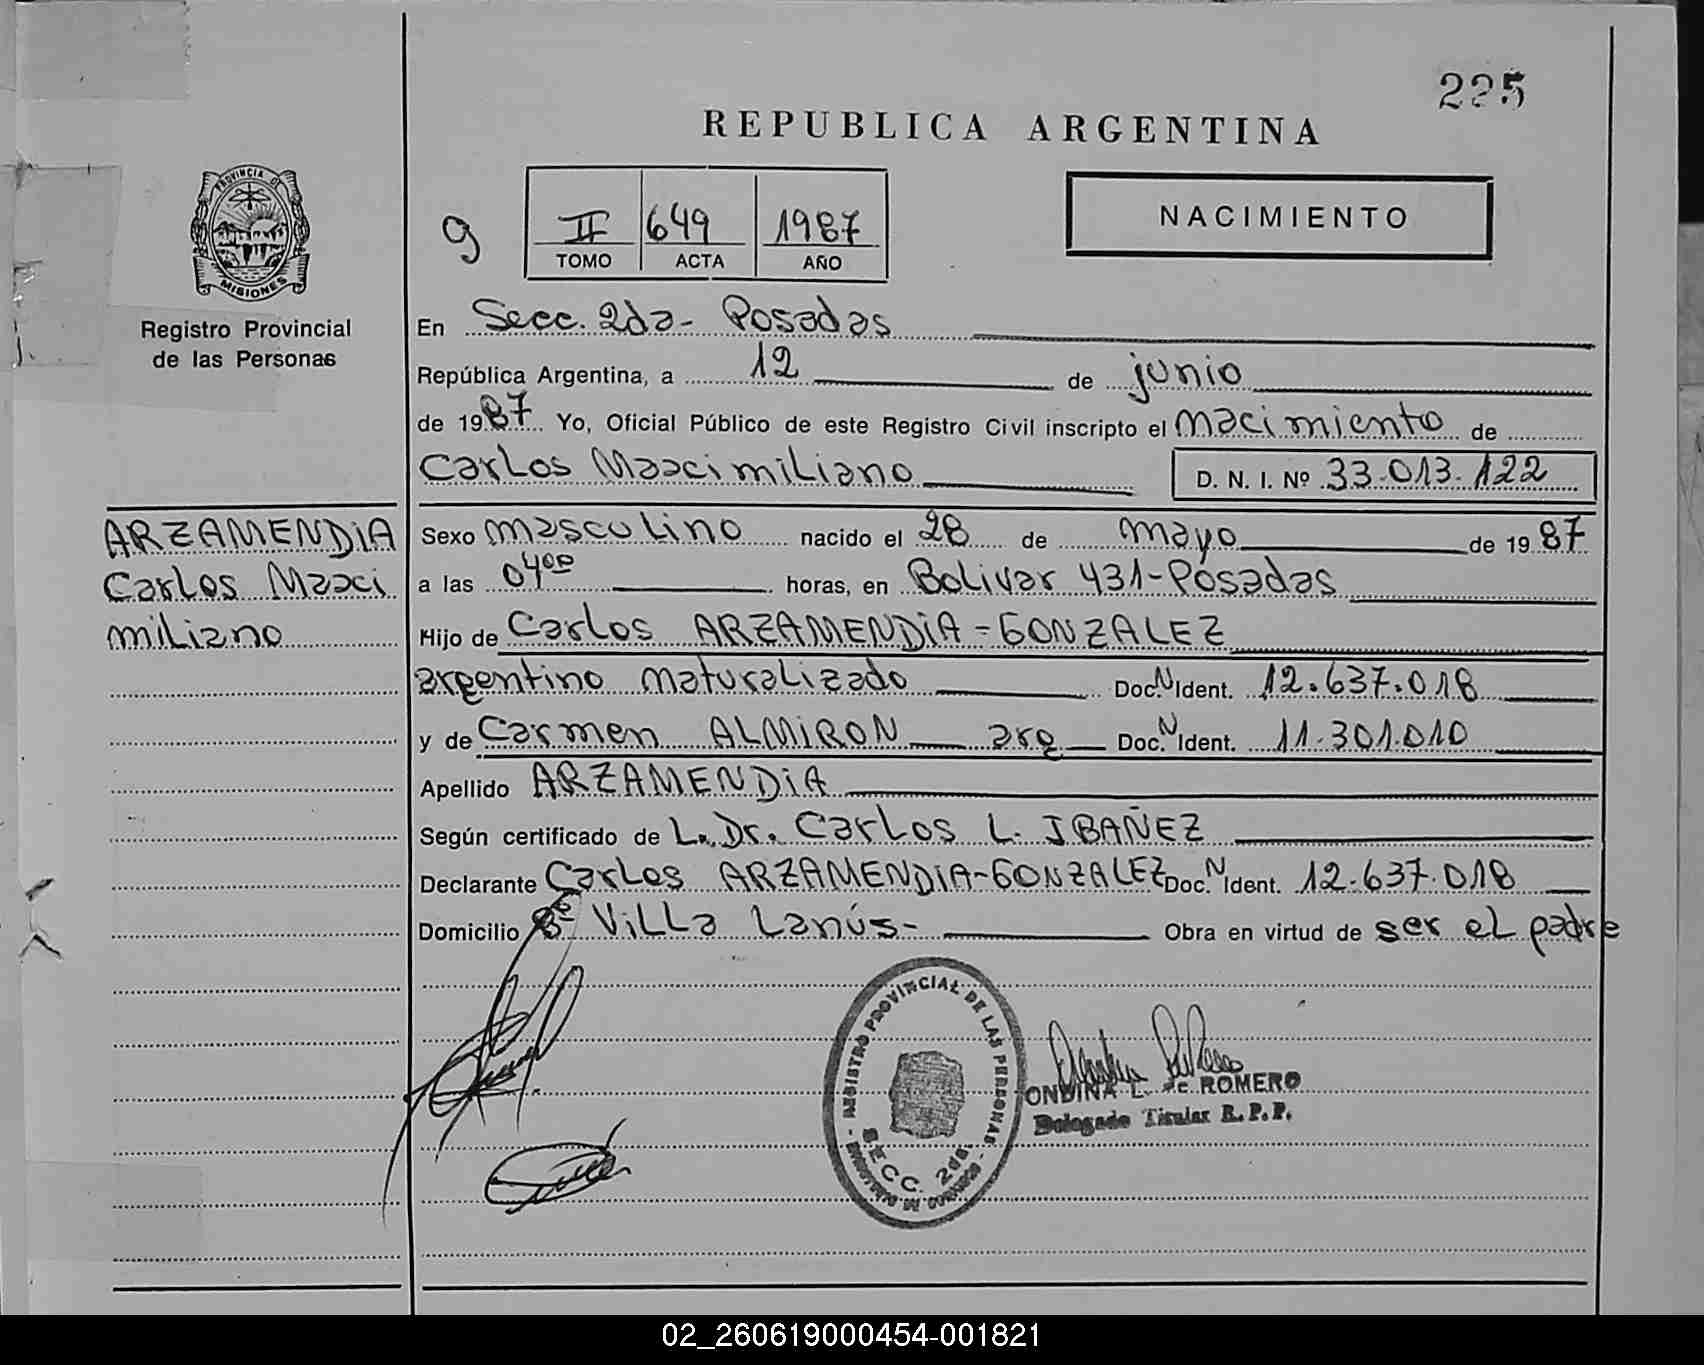 225
REPUBLICA ARGENTINA
PROVINCIA DE
MISIONES
Registro Provincial
de las Personas
9
II 649 1987
TOMO ACTA AÑO
NACIMIENTO
En Secc. 2da- Posadas
República Argentina, a 12 de junio
de 1987 Yo, Oficial Público de este Registro Civil inscripto el nacimiento de
Carlos Maxcimiliano D. N. I. Nº 33.013.122
ARZAMENDiA
Carlos Maxci
miliano
Sexo masculino nacido el 28 de mayo de 1987
a las 04⁰⁰ horas, en Bolivar 431-Posadas
Hijo de Carlos ARZAMENDiA-GONZALEZ
argentino naturalizado Doc.N Ident. 12.637.018
y de Carmen ALMiRON arg Doc.N Ident. 11.301.010
Apellido ARZAMENDiA
Según certificado de L. Dr. Carlos L. IBAÑEZ
Declarante Carlos ARZAMENDiA-GONZALEZ Doc.N Ident. 12.637.018
Domicilio Bº Villa Lanús- Obra en virtud de ser el padre
REGISTRO PROVINCIAL DE LAS PERSONAS
SECC. 2da.
ONDINA L. de ROMERO
Delegado Titular R.P.P.
02_260619000454-001821